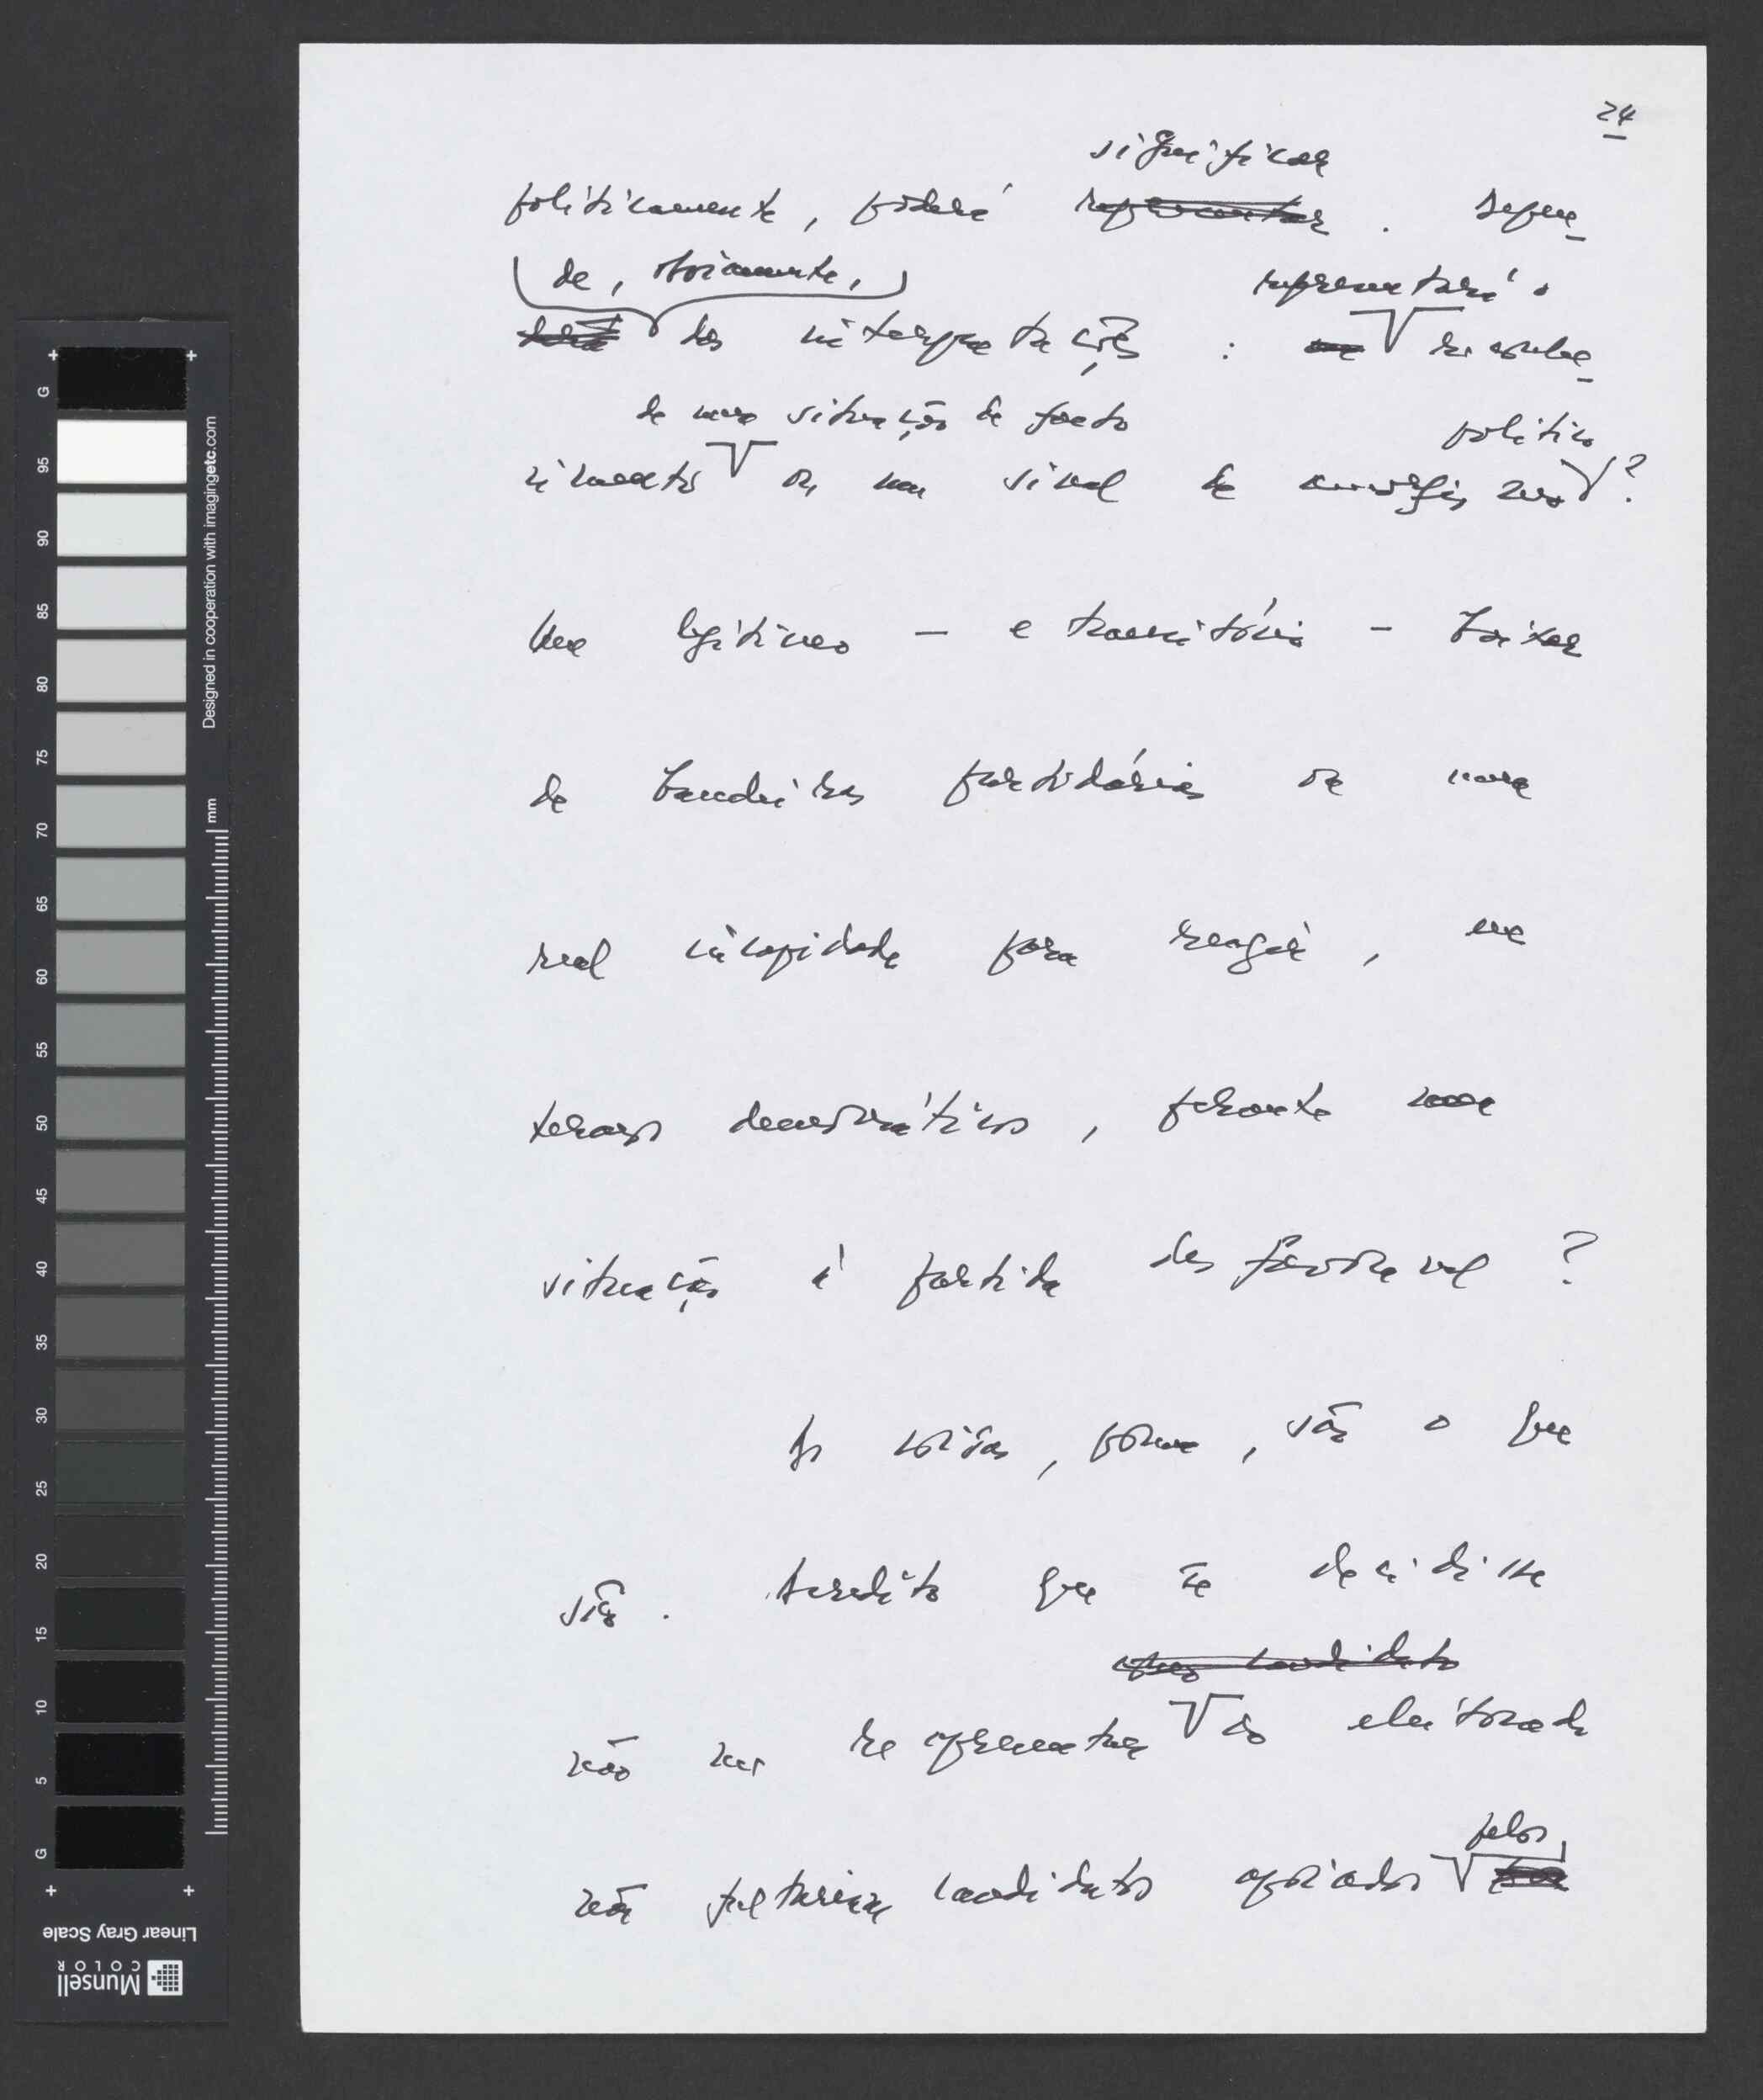 24
significar
politicamente, poderá representar. Depen-
de, obviamente,
representará o
das interpretações : reconhe-
de uma situação de facto
político
cimento ou um sinal de ?
Um legítimo — e transitório — baixar
de bandeiras partidárias ou uma
real incapidade para reagir, em
termos democráticos, perante uma
situação à partida desfavorável ?
As coisas, porém, são o que
são. Acredito que se decidisse
candidato
não me reapresentar ao eleitorado
pelos
não faltariam candidatos apoiados
G
95
90
85
80
75
70
65
60
55
50
45
40
35
30
25
20
15
10
5
G
Designed in cooperation with imagingetc.com
mm
Linear Gray Scale
Munsell
COLOR